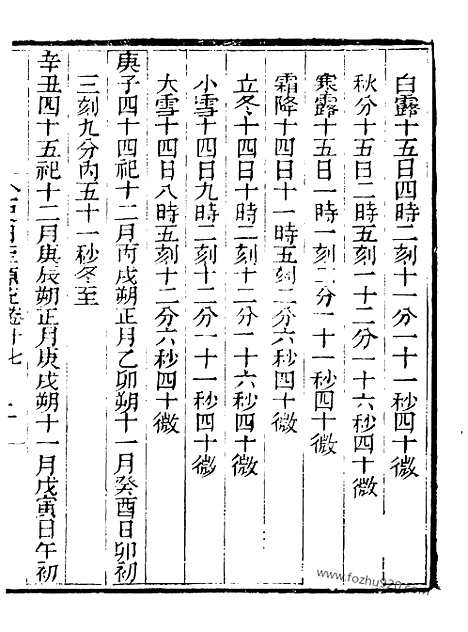 白露十五日四時二刻十一分一十一秒四十微
秋分十五日二時五刻一十二分一十六秒四十微
寒露十五日一時一刻二分一十一秒四十微
霜降十四日十一時五刻二分六秒四十微
立冬十四日十時二刻十二分一十六秒四十微
小雪十四日九時二刻十二分一十一秒四十微
大雪十四日八時五刻十二分六秒四十微
庚子四十四祀十二月丙戌朔正月乙卯朔十一月癸酉日卯初
三刻九分內五十一秒冬至
辛丑四十五祀十二月庚辰朔正月庚戌朔十一月戊寅日午初
卷十七
www.fozhu920.com